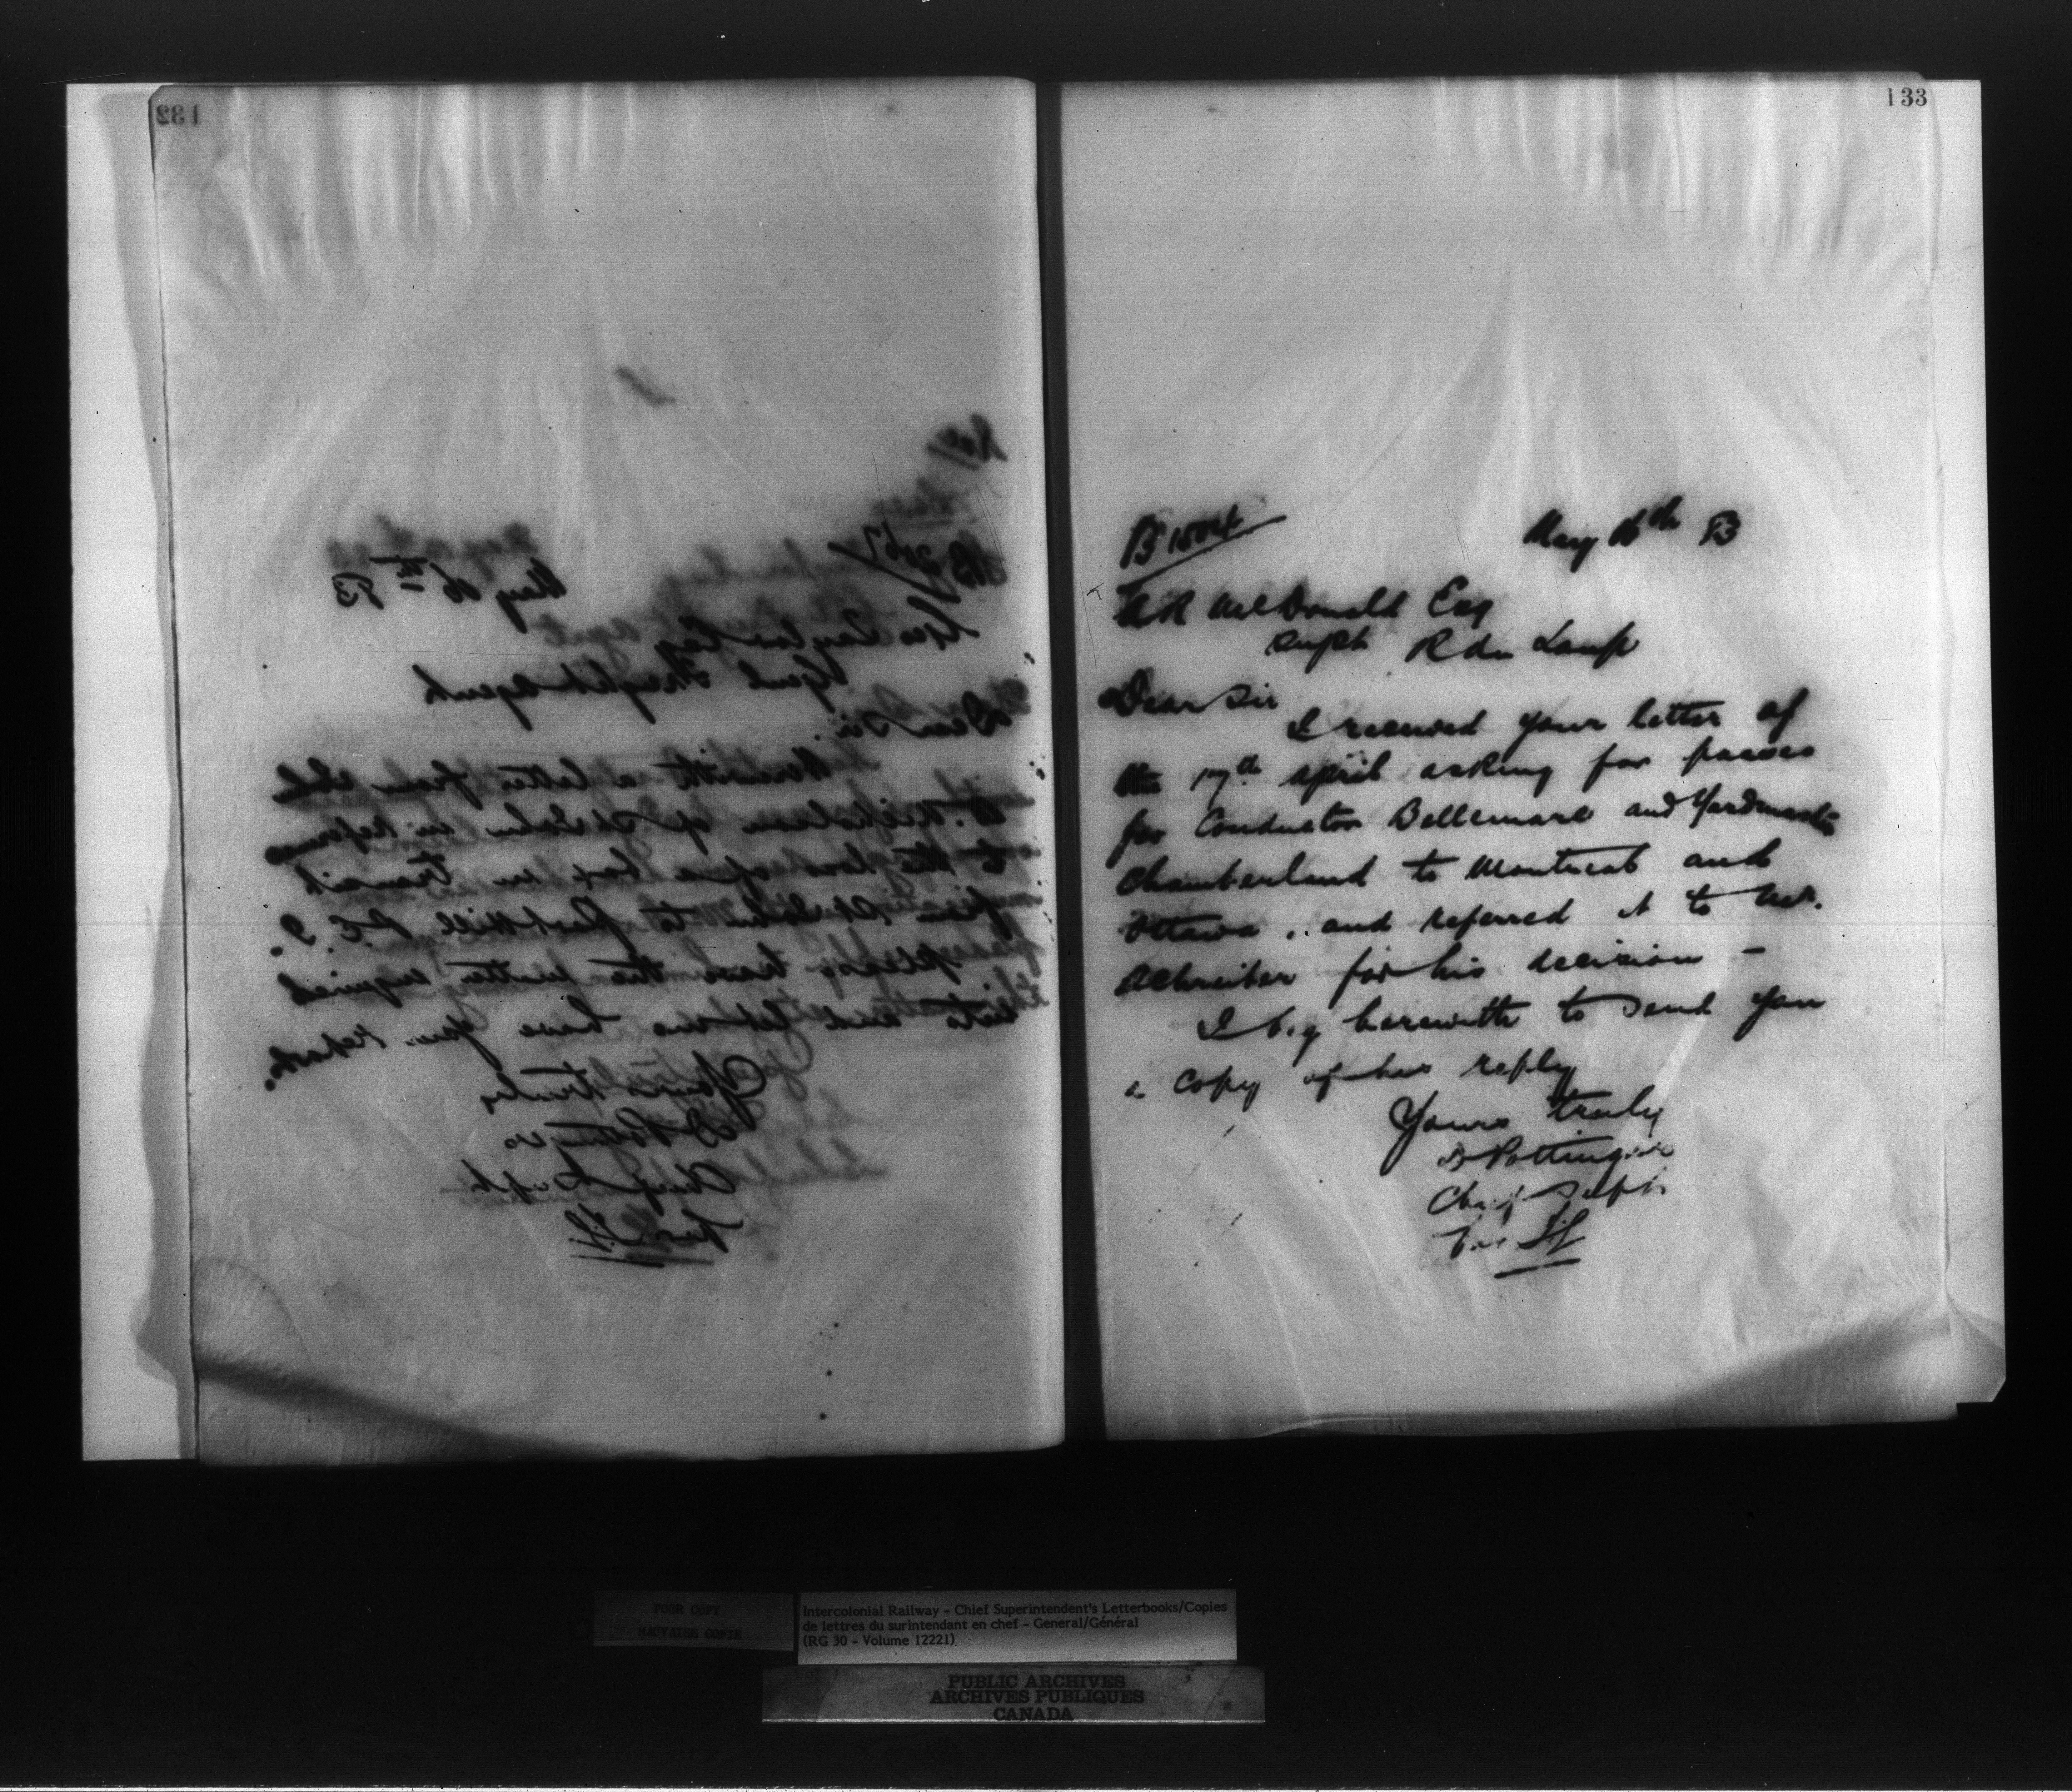 132
May 16th 83
Geo Taylor Esq
Genl Freight agent
Dear Sir.
Herewith a letter from
W. Nicholson of St John in reference
to the loss of a box in transit
from St John to Port Hill P.E.I.
please have the matter enquired
into and let me have your report.
Yours truly
D Pottinger
Chief Supt
133
B 15014
May 16th 83
A R McDonald Esq
Supt R du Loup
Dear Sir
I received your letter of
the 17th april asking for passes
for Conductor Bellemare and Yardmaster
Chamberland to Montreal and
Ottawa, and referred it to Mr.
Schreiber for his decision -
I beg herewith to send you
a copy of his reply
Yours truly
D Pottinger
Chief Supt
POOR COPY
MAUVAISE COPIE
Intercolonial Railway - Chief Superintendent's Letterbooks/Copies
de lettres du surintendant en chef - General/Général
(RG 30 - Volume 12221)
PUBLIC ARCHIVES
ARCHIVES PUBLIQUES
CANADA